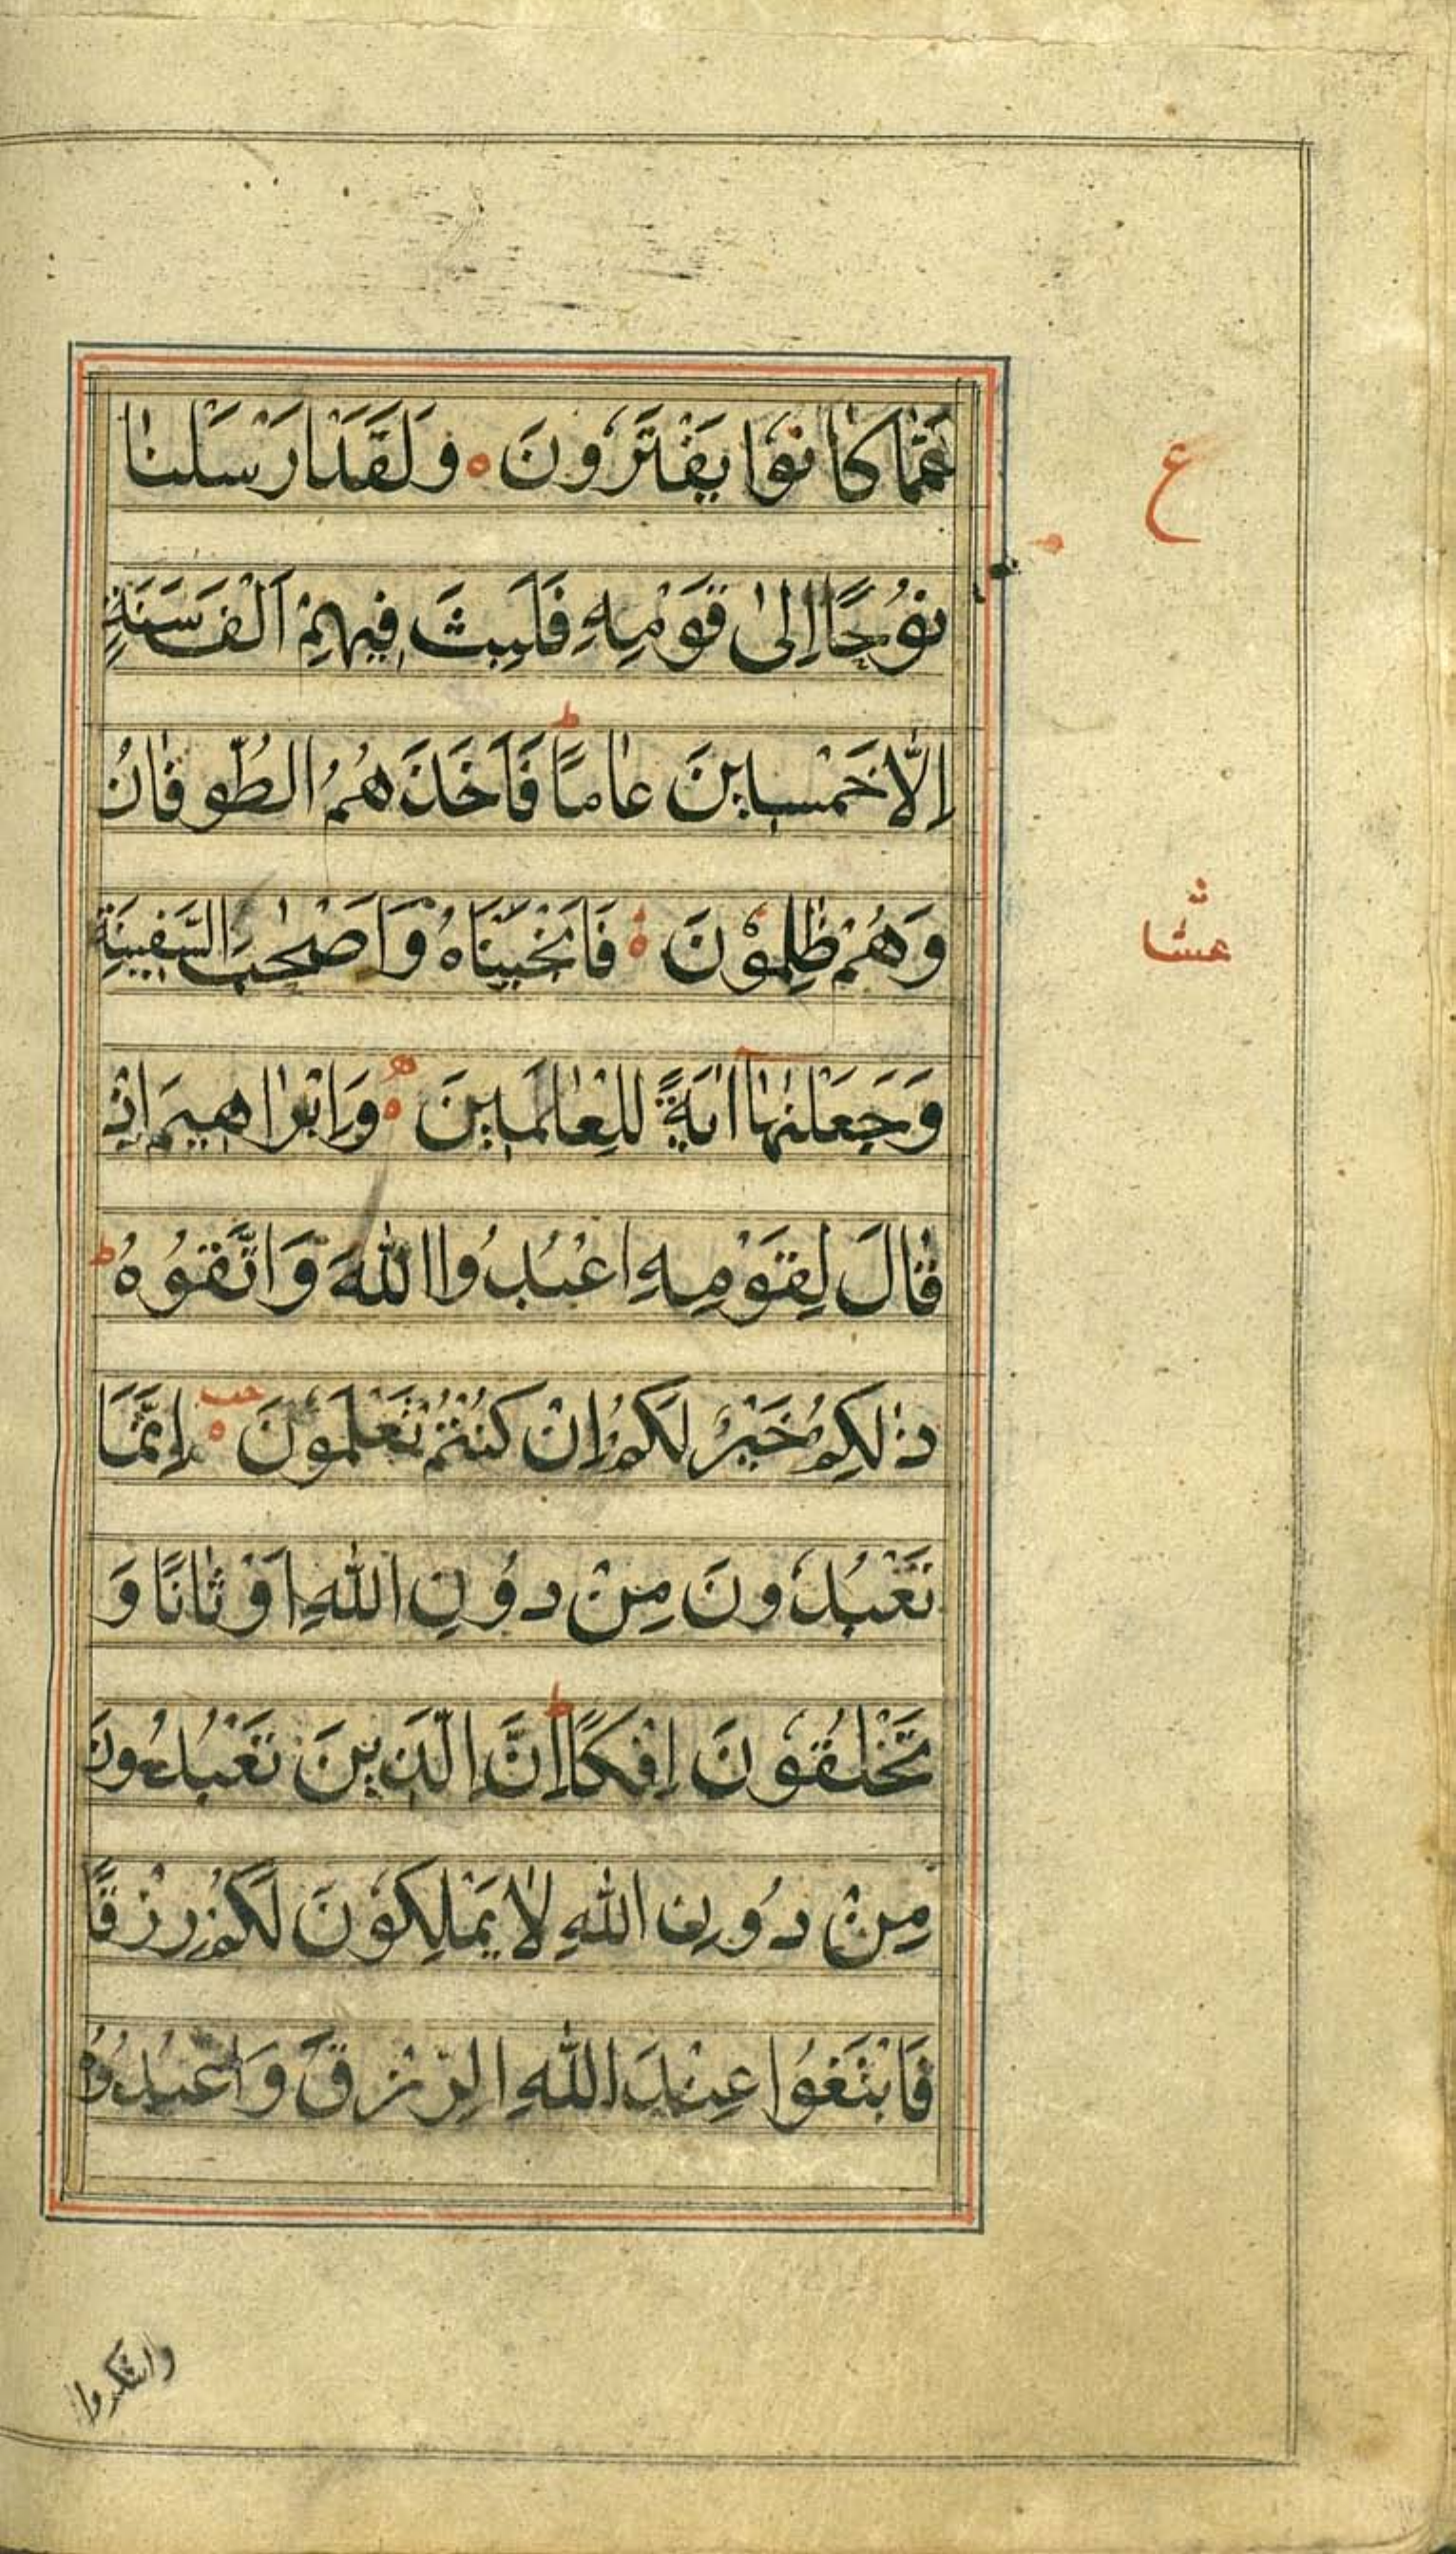 عَمَّا كَانُوْا يَفْتَرُونَ ۝ وَلَقَدْ اَرْسَلْنَا
ع
نُوْحًا اِلٰى قَوْمِهِ فَلَبِثَ فِيْهِمْ اَلْفَ سَنَةٍ
اِلَّا خَمْسِيْنَ عَامًا ط فَاَخَذَهُمُ الطُّوفَانُ
وَهُمْ ظٰلِمُوْنَ ۝ فَاَنْجَيْنَاهُ وَاَصْحٰبَ السَّفِيْنَةِ
وَجَعَلْنٰهَا اٰيَةً لِلْعَالَمِيْنَ ۝ وَاِبْرَاهِيْمَ اِذْ
قَالَ لِقَوْمِهِ اعْبُدُوا اللّٰهَ وَاتَّقُوْهُ ط
ذٰلِكُمْ خَيْرٌ لَكُمْ اِنْ كُنْتُمْ تَعْلَمُوْنَ ۝ اِنَّمَا
تَعْبُدُونَ مِنْ دُوْنِ اللّٰهِ اَوْثَانًا وَ
تَخْلُقُوْنَ اِفْكًا ط اِنَّ الَّذِيْنَ تَعْبُدُوْنَ
مِنْ دُوْنِ اللّٰهِ لَا يَمْلِكُوْنَ لَكُمْ رِزْقًا
فَابْتَغُوْا عِنْدَ اللّٰهِ الرِّزْقَ وَاعْبُدُوْهُ
واشكروا